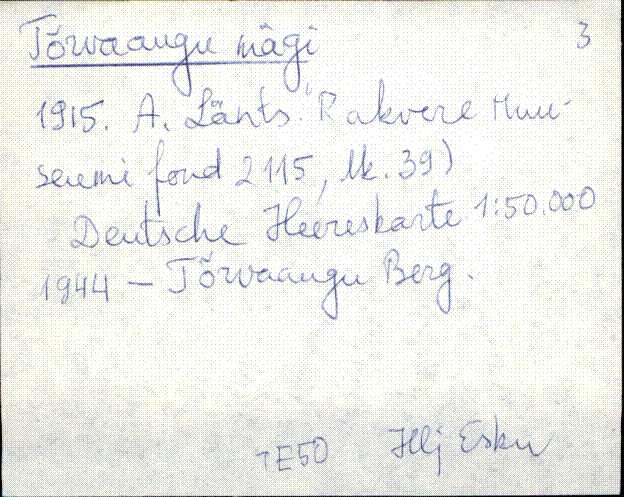 Tõrvaaugu mägi 3
1915. A. Länts. (Rakvere Muu-
seumi fond 2115, lk. 39)
Deutsche Heereskarte 1:50.000
1944 – Tõrvaaugu Berg.
Esku